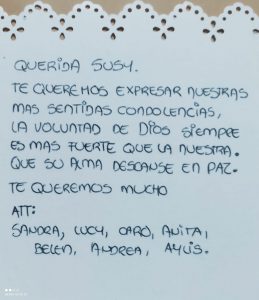 QUERIDA SUSY.
TE QUEREMOS EXPRESAR NUESTRAS
MAS SENTIDAS CONDOLENCIAS,
LA VOLUNTAD DE DIOS SIEMPRE
ES MAS FUERTE QUE LA NUESTRA.
QUE SU ALMA DESCANSE EN PAZ.
TE QUEREMOS MUCHO
ATT:
SANDRA, LUCY, CARO, ANITA,
BELEN, ANDREA, AYLIS.